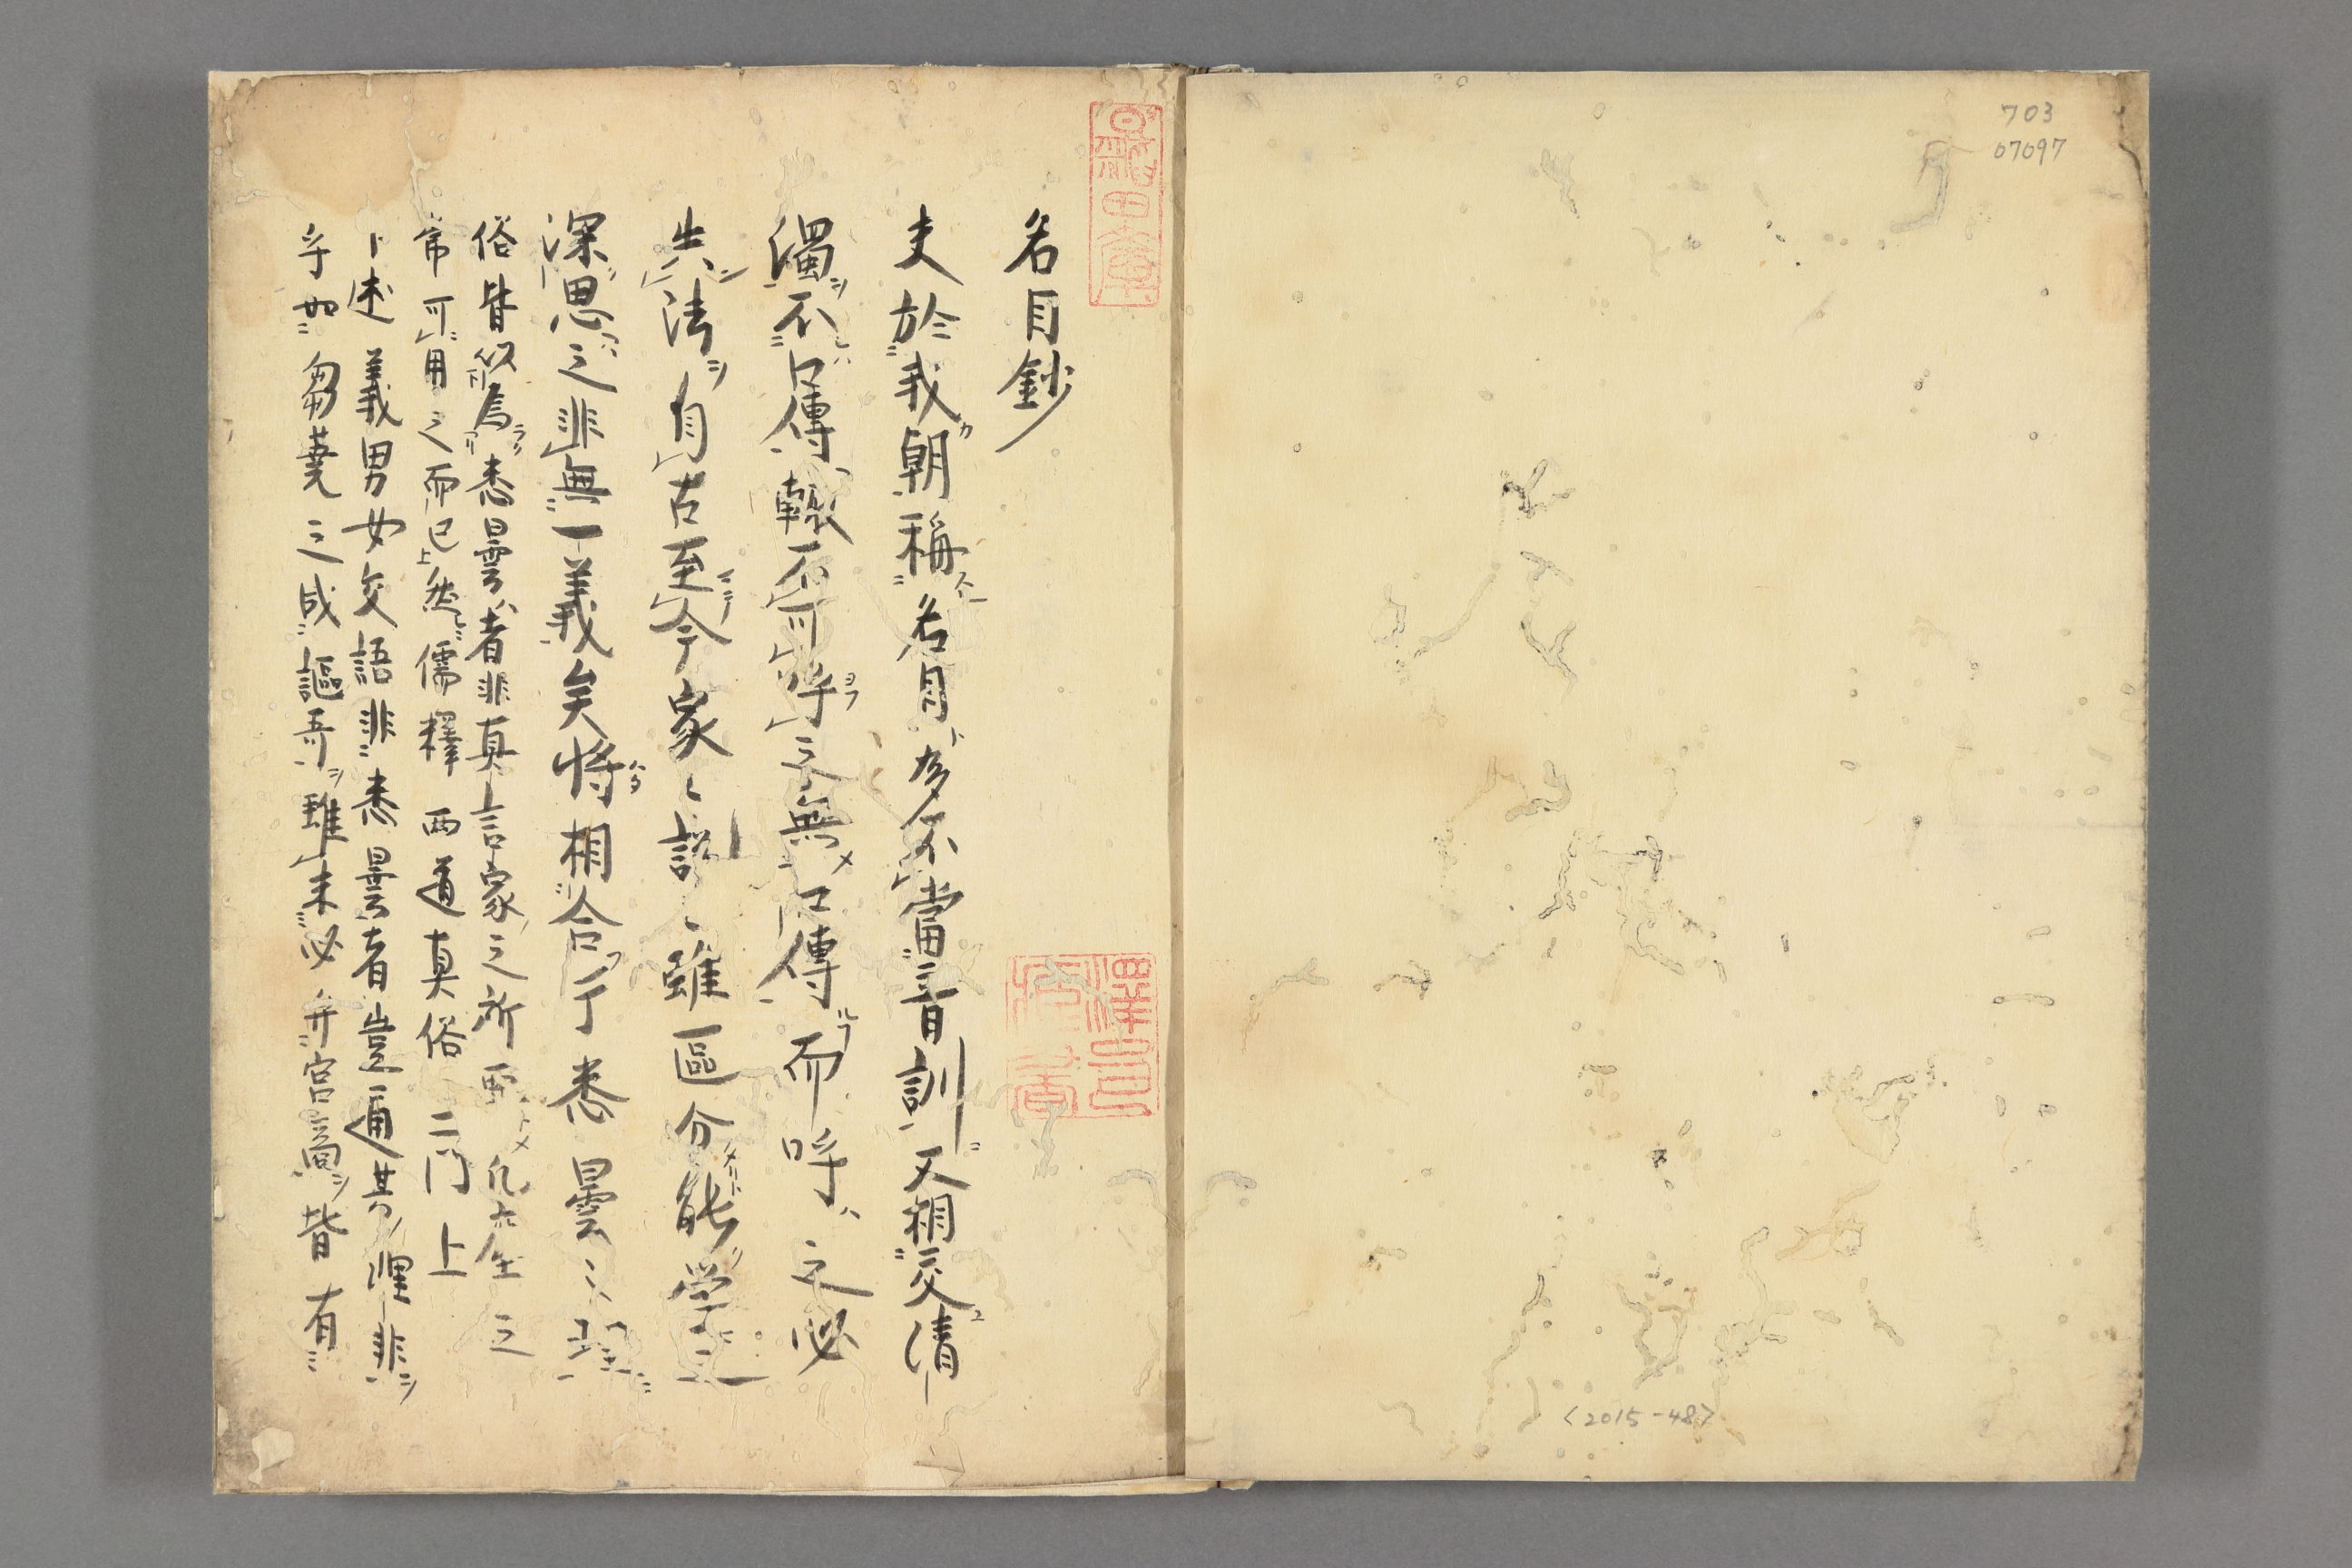 703
07097
<2015-48>
名目鈔
夫於我朝稱名目多不當音訓又相交清
濁不口傳輙不可呼之無口傳而呼之必
失法自古至今家〻説〻雖區分能学之
深思之非無一義矣将相合于悉曇之理
俗皆以為悉曇者非真言家之所要
常可用之而已然儒釋両道真俗二門上
上述義男女交語非悉曇者豈通其理非
乎如蒭蕘之成謳哥雖未必弁宮商皆有